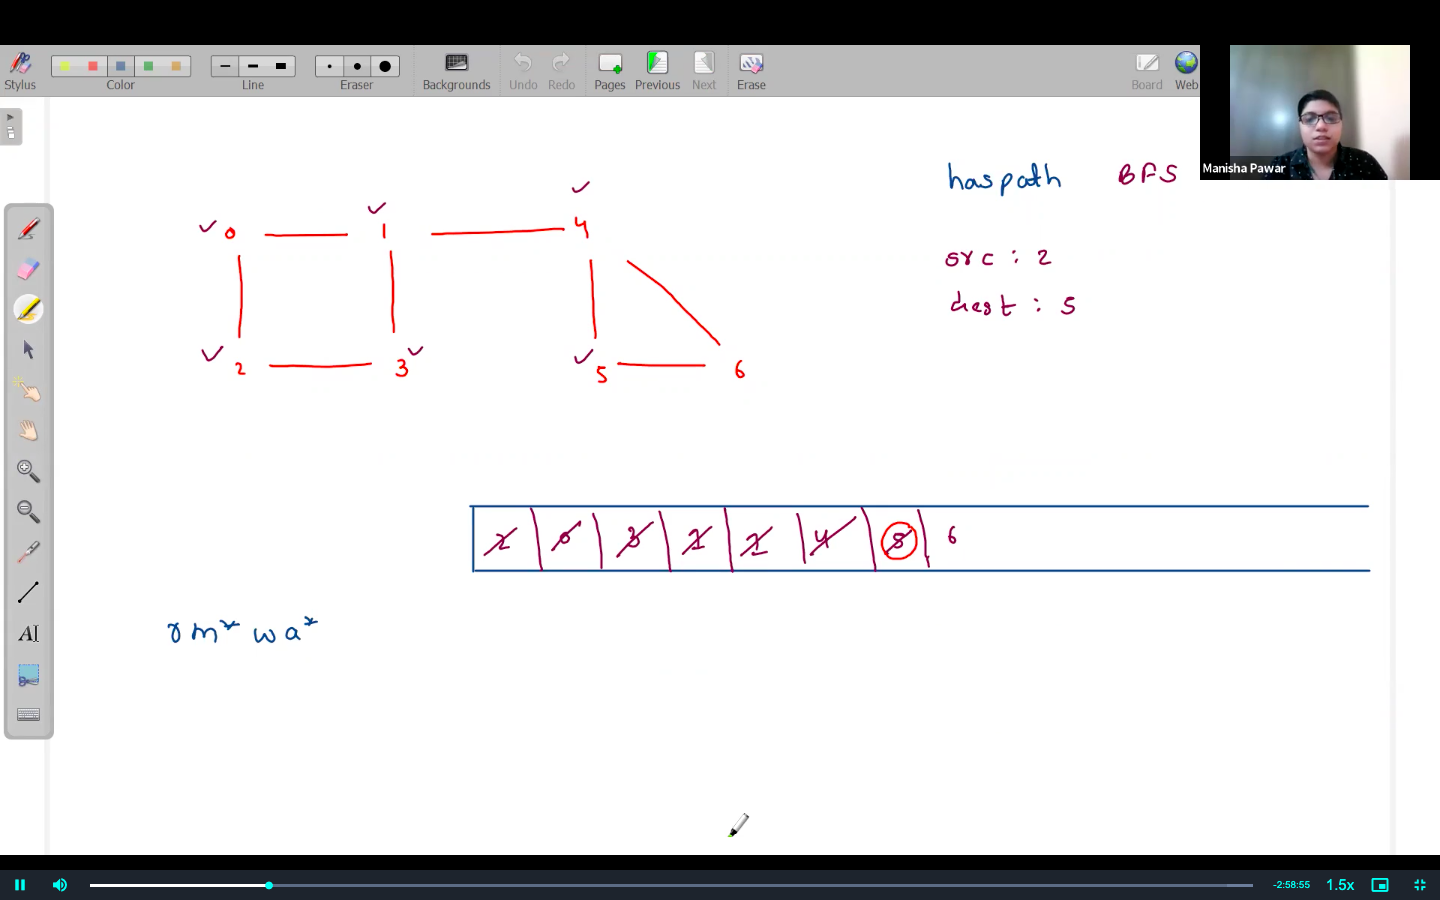 Stylus
Color
Line
Eraser
Backgrounds
Undo
Redo
Pages
Previous
Next
Erase
Board
Web
Manisha Pawar
haspath BFS
0 1 4
src : 2
dest : 5
2 3 5 6
2 0 3 1 1 4 5 6
r m* w a*
AI
-2:58:55
1.5x